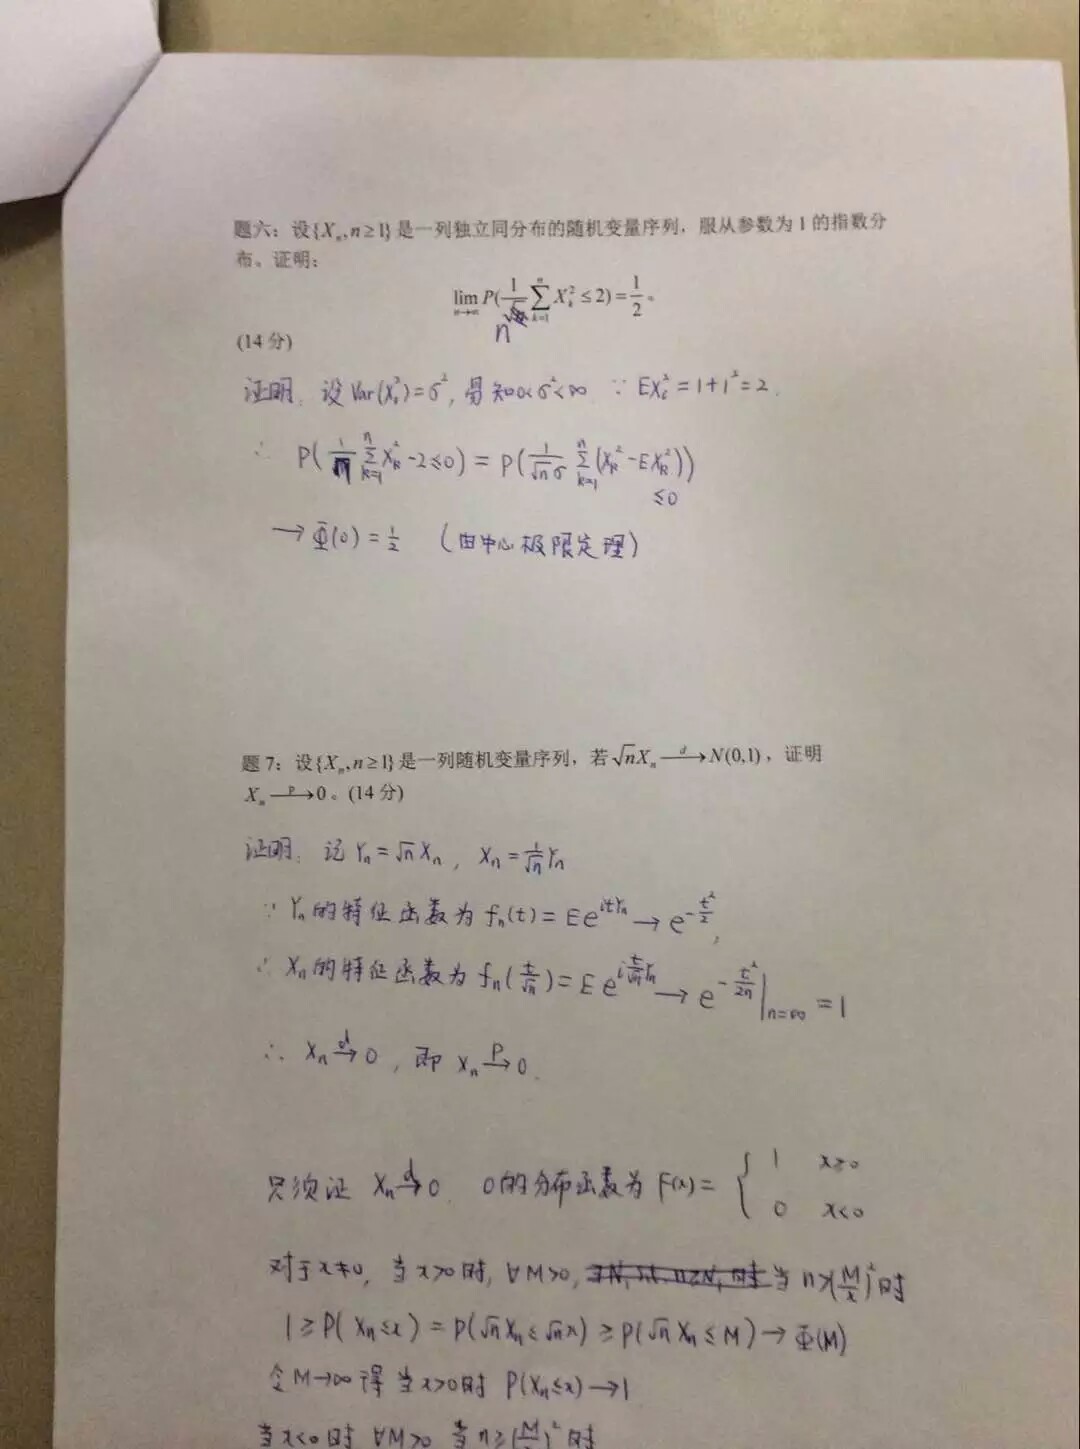 题六：设{Xₙ, n≥1}是一列独立同分布的随机变量序列，服从参数为 1 的指数分
布。证明：
lim_{n→∞} P(1/n ∑_{k=1}^{n} X_k² ≤ 2) = 1/2。
(14 分)
证明. 设 Var(Xᵢ²)=σ², 易知0<σ²<∞ ∵ EXᵢ²=1+1²=2.
∴ P(1/n ∑_{k=1}^{n} X_k² -2≤0) = P(1/(√n σ) ∑_{k=1}^{n} (X_k² - EX_k²))
≤0
→ Φ(0) = 1/2 (由中心极限定理)
题 7：设{Xₙ, n≥1}是一列随机变量序列，若 √n Xₙ —d→ N(0,1)，证明
Xₙ —p→ 0。(14 分)
证明. 记 Yₙ = √n Xₙ , Xₙ = 1/√n Yₙ
∵ Yₙ的特征函数为 fₙ(t) = E e^{itYₙ} → e^{-t²/2},
∴ Xₙ的特征函数为 fₙ(t/√n) = E e^{i t/√n Yₙ} → e^{-t²/2n}|_{n=∞} = 1
∴ Xₙ —d→ 0 , 即 Xₙ —P→ 0.
只须证 Xₙ —d→ 0. 0的分布函数为 F(x) = { 1 x≥0
0 x<0
对于x≠0, 当x>0时, ∀M>0, 当 n>(M/x)²时
1 ≥ P(Xₙ≤x) = P(√n Xₙ ≤ √n x) ≥ P(√n Xₙ ≤ M) → Φ(M)
令M→∞得 当x>0时 P(Xₙ≤x) → 1
当x<0时 ∀M>0 当n≥(M/x)²时